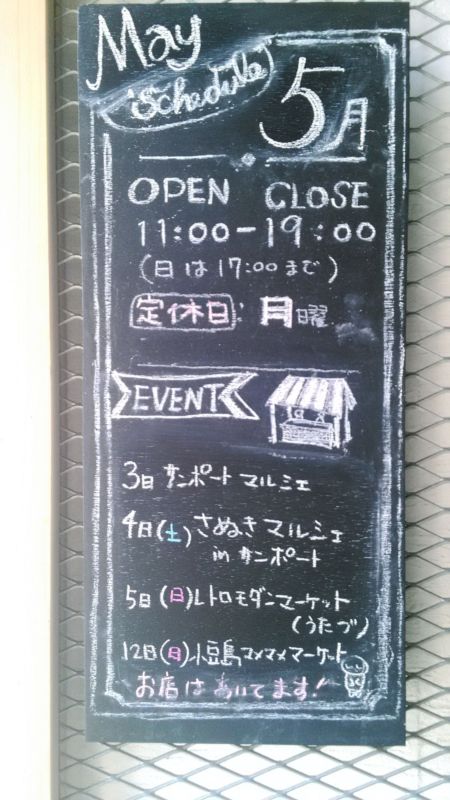 May
Schedule
5月
OPEN CLOSE
11:00-19:00
(日は17:00まで)
定休日: 月曜
EVENT
3日 サンポートマルシェ
4日(土) さぬきマルシェ
in サンポート
5日(日)レトロモダンマーケット
(うたづ)
12日(日)小豆島マメマメマーケット
お店はあいてます!